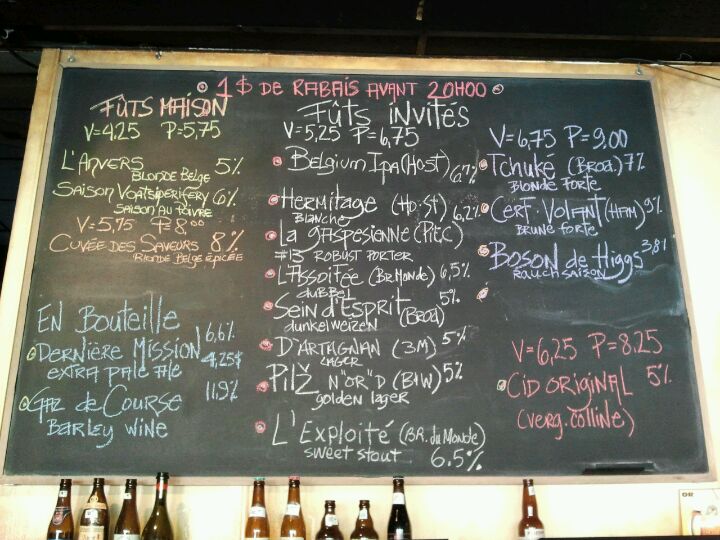 1$ DE RABAIS AVANT 20H00
FÛTS MAISON
V=4,25 P=5,75
L'ANVERS 5%
BLONDE BELGE
SAISON VOATSIPERIFERY 6%
SAISON AU POIVRE
V=5,75 P=8,00
CUVÉE DES SAVEURS 8%
BLONDE BELGE ÉPICÉE
EN BOUTEILLE
DERNIÈRE MISSION 6,6%
EXTRA PALE ALE 4,25$
GAZ DE COURSE 11,9%
BARLEY WINE
FÛTS INVITÉS
V=5,25 P=6,75
BELGIUM IPA (HOST) 6,7%
HERMITAGE (HO.ST) 6,2%
BLANCHE
LA GASPESIENNE (PITC)
#13 ROBUST PORTER
L'ASSOIFFÉE (BR.MONDE) 6,5%
DUBBEL
SEIN D'ESPRIT (BROD) 5%
DUNKELWEIZEN
D'ARTAGNAN (3M) 5%
LAGER
PILŽ N"OR"D (BHW) 5%
GOLDEN LAGER
L'EXPLOITÉ (BR. DU MONDE)
SWEET STOUT 6.5%
V=6,75 P=9,00
TCHUKÉ (BROD.) 7%
BLONDE FORTE
CERF-VOLANT (HAM) 9%
BRUNE FORTE
BOSON DE HIGGS 3,8%
RAUCHSAISON
V=6,25 P=8,25
CID ORIGINAL 5%
(VERG. COLLINE)